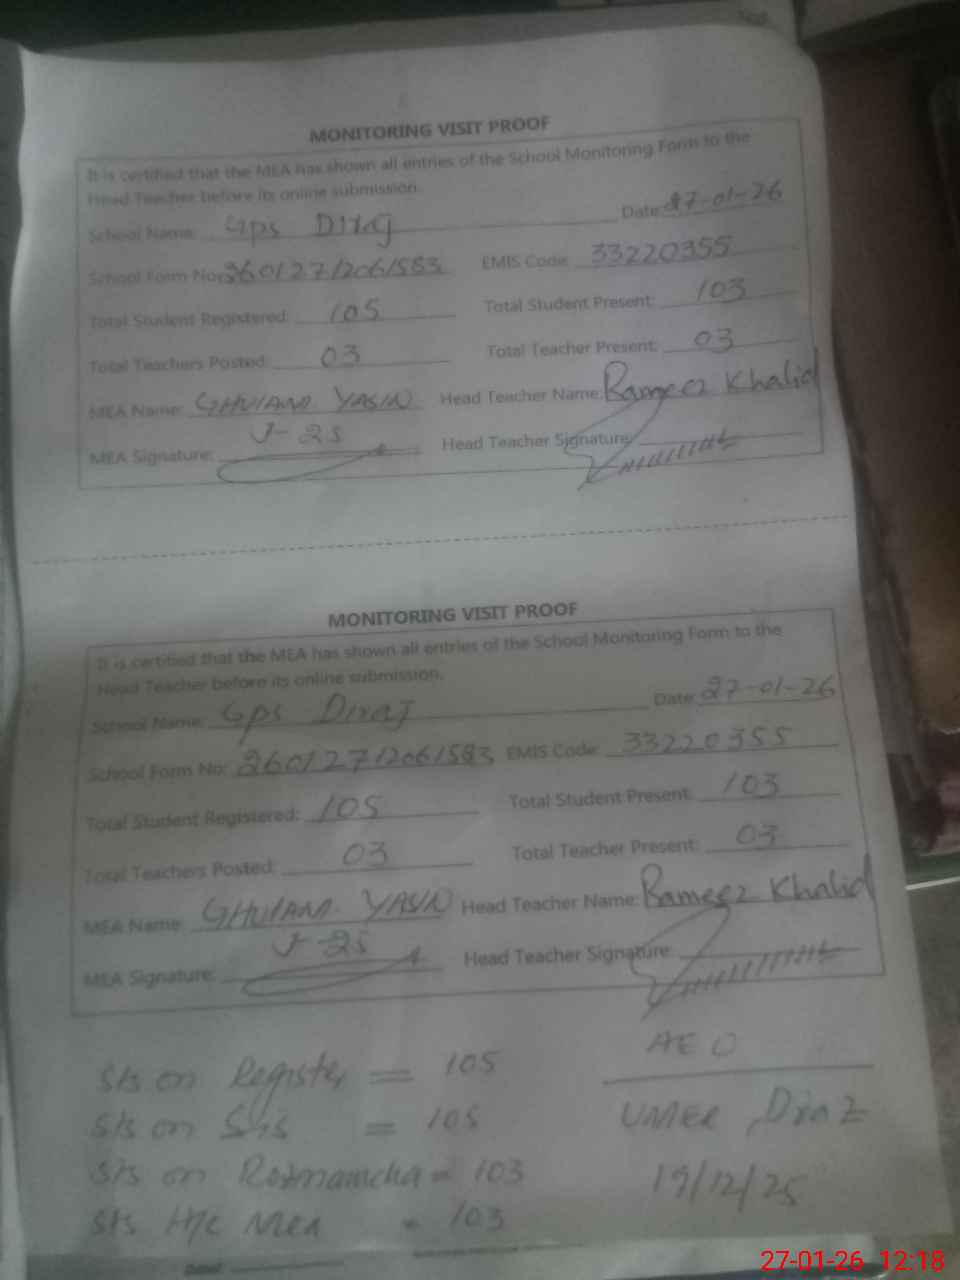 MONITORING VISIT PROOF
It is certified that the MEA has shown all entries of the School Monitoring Form to the
Head Teacher before its online submission.
School Name: Gps Diraj Date: 27-01-26
School Form No: 26012712061583 EMIS Code: 33220355
Total Student Registered: 105 Total Student Present: 103
Total Teachers Posted: 03 Total Teacher Present: 03
MEA Name: GHULAM YASIN Head Teacher Name: Rameez Khalid
J-25
MEA Signature: Head Teacher Signature:
MONITORING VISIT PROOF
It is certified that the MEA has shown all entries of the School Monitoring Form to the
Head Teacher before its online submission.
School Name: Gps Diraj Date: 27-01-26
School Form No: 26012712061583 EMIS Code: 33220355
Total Student Registered: 105 Total Student Present: 103
Total Teachers Posted: 03 Total Teacher Present: 03
MEA Name: GHULAM YASIN Head Teacher Name: Rameez Khalid
J-25
MEA Signature: Head Teacher Signature:
AEO
Sts on Register = 105
UMER Draz
Sts on Sis = 105
Sts on Roznamcha = 103
19/12/25
Sts H/c Mea = 103
27-01-26 12:18